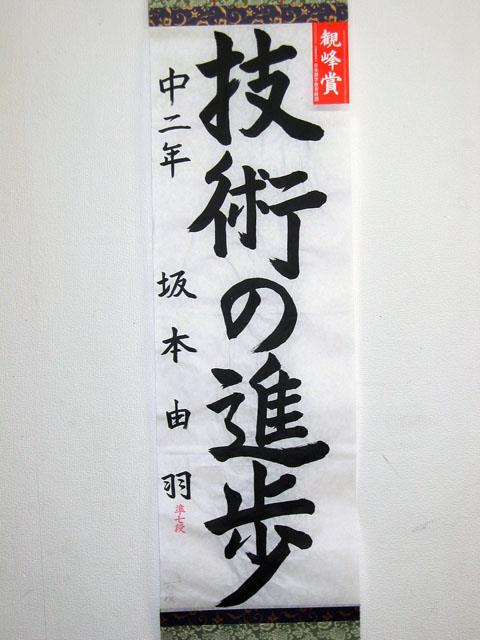 観峰賞
技術の進歩
中二年 坂本由羽
準七段